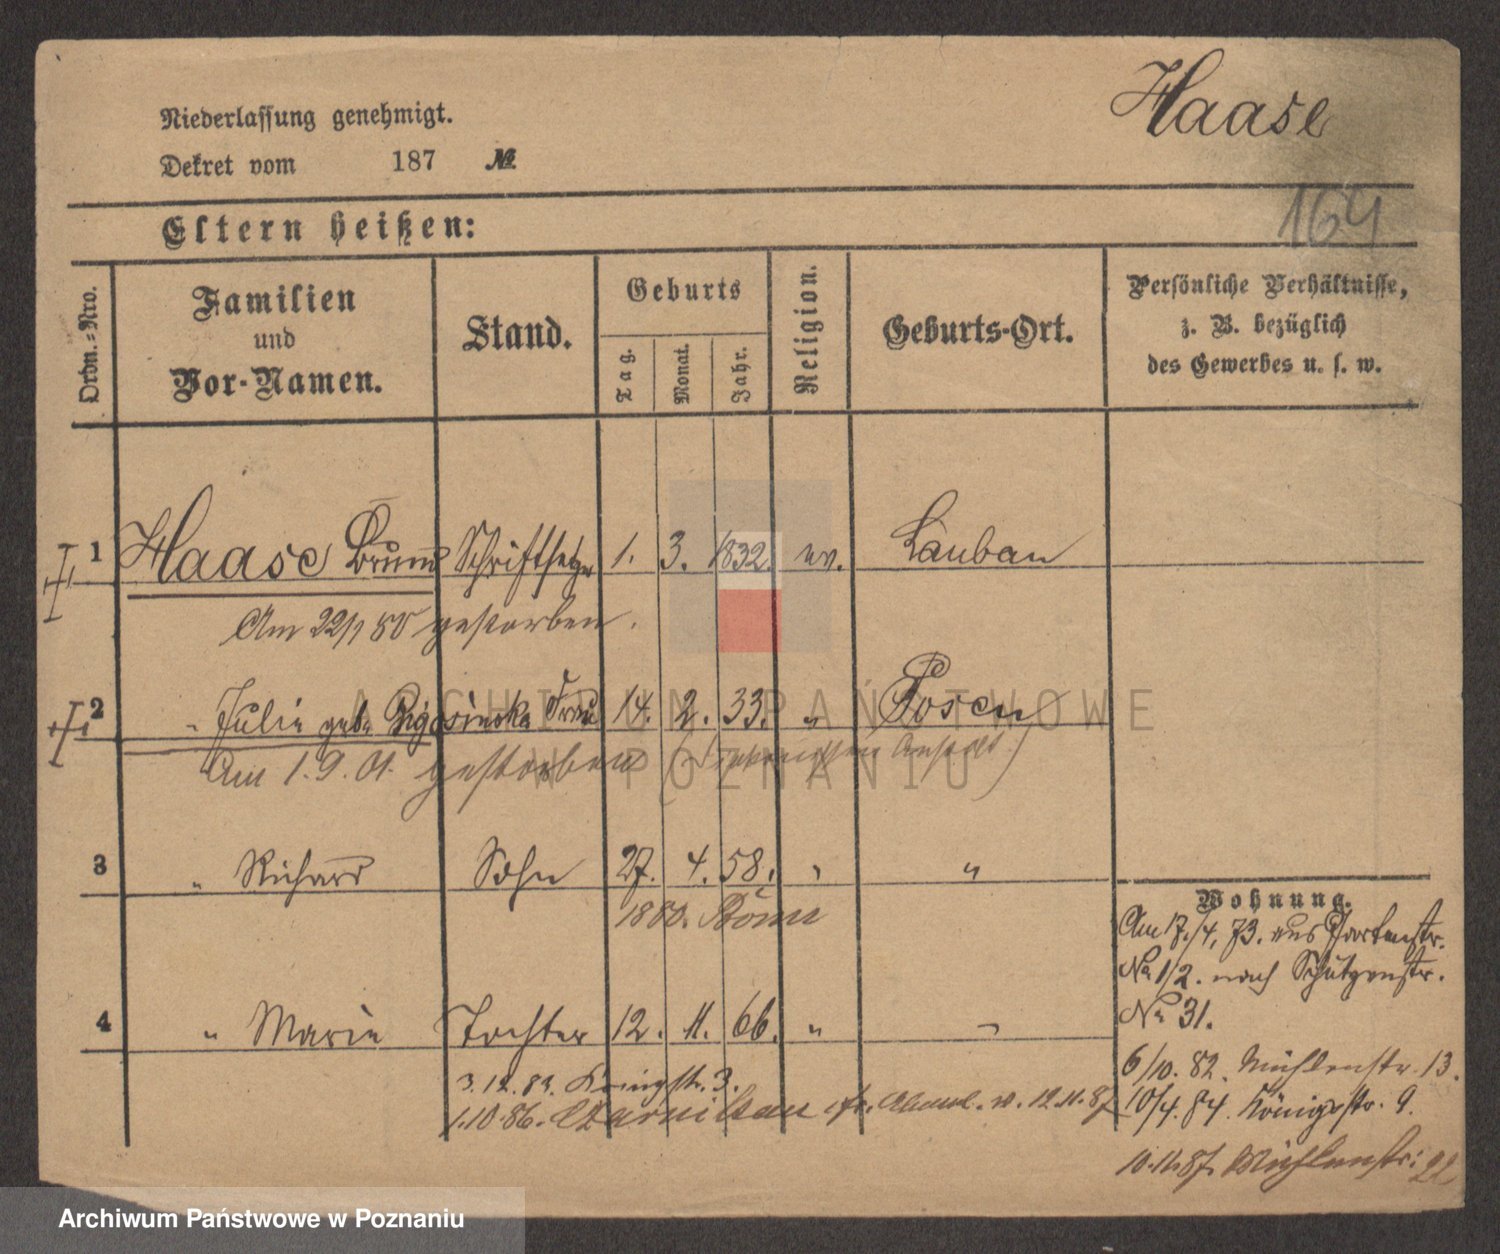 Haase
Niederlassung genehmigt.
Dekret vom 187 №
164
Eltern heißen:
Ordn.=Nro.
Familien
und
Vor-Namen.
Stand.
Geburts
Tag.
Monat.
Jahr.
Religion.
Geburts-Ort.
Persönliche Verhältnisse,
z. B. bezüglich
des Gewerbes u. s. w.
1 Haase Bruno Schriftsetzer 1. 3. 1832. ev. Lauban
Am 22/1 80 gestorben.
2 " Julie geb. Frau 14. 2. 33. " Posen
Am 1. 9. 01. gestorben
3 " Richard Sohn 27. 4. 58. " "
1880.
4 " Marie Tochter 12. 11. 66. " "
3.12.83. Königstr. 3.
1.10.86. Czarnikau 12.11.87
Wohnung.
Am 17./4. 73. aus Gartenstr.
No 1/2. nach Schützenstr.
No 31.
6/10. 82. Mühlenstr. 13.
10/4. 84. Königsstr. 9.
10.11.87. Mühlenstr. 22
ARCHIWUM PAŃSTWOWE
W POZNANIU
Archiwum Państwowe w Poznaniu